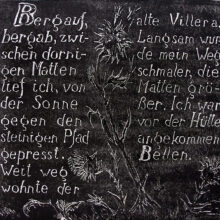 Bergauf,
bergab, zwi-
schen dorni-
gen Matten
lief ich, von
der Sonne
gegen den
steinigen Pfad
gepresst.
Weit weg
wohnte der
alte Villera.
Langsam wur-
de mein Weg
schmaler, die
Matten grö-
ßer. Ich war
vor der Hütte
angekommen.
Bellen.